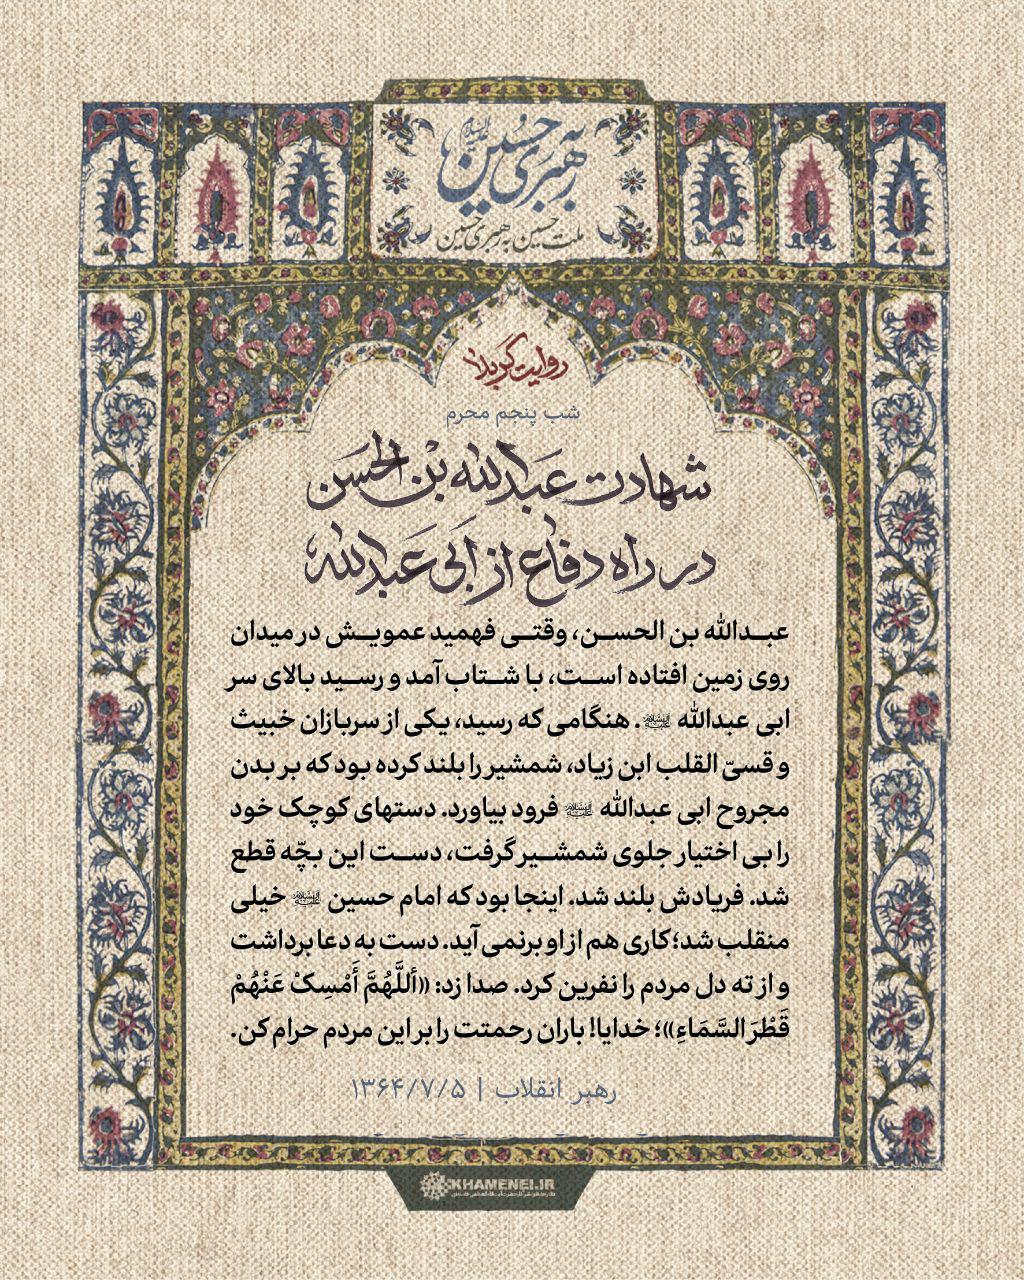 به رهبری حسین علیه‌السلام
ملت حسین به رهبری حسین
روایت کربلا
شب پنجم محرم
شهادت عَبدالله بْن الحَسَن
در راه دفاع از اَبی عَبدالله
عبدالله بن الحسن، وقتی فهمید عمویش در میدان
روی زمین افتاده است، با شتاب آمد و رسید بالای سر
ابی عبدالله علیه‌السلام. هنگامی که رسید، یکی از سربازان خبیث
و قسیّ القلب ابن زیاد، شمشیر را بلند کرده بود که بر بدن
مجروح ابی عبدالله علیه‌السلام فرود بیاورد. دستهای کوچک خود
را بی اختیار جلوی شمشیر گرفت، دست این بچّه قطع
شد. فریادش بلند شد. اینجا بود که امام حسین علیه‌السلام خیلی
منقلب شد؛ کاری هم از او برنمی آید. دست به دعا برداشت
و از ته دل مردم را نفرین کرد. صدا زد: «أللَّهُمَّ أَمْسِکْ عَنْهُمْ
قَطْرَ السَّمَاءِ»؛ خدایا! باران رحمتت را بر این مردم حرام کن.
رهبر انقلاب | ۱۳۶۴/۷/۵
KHAMENEI.IR